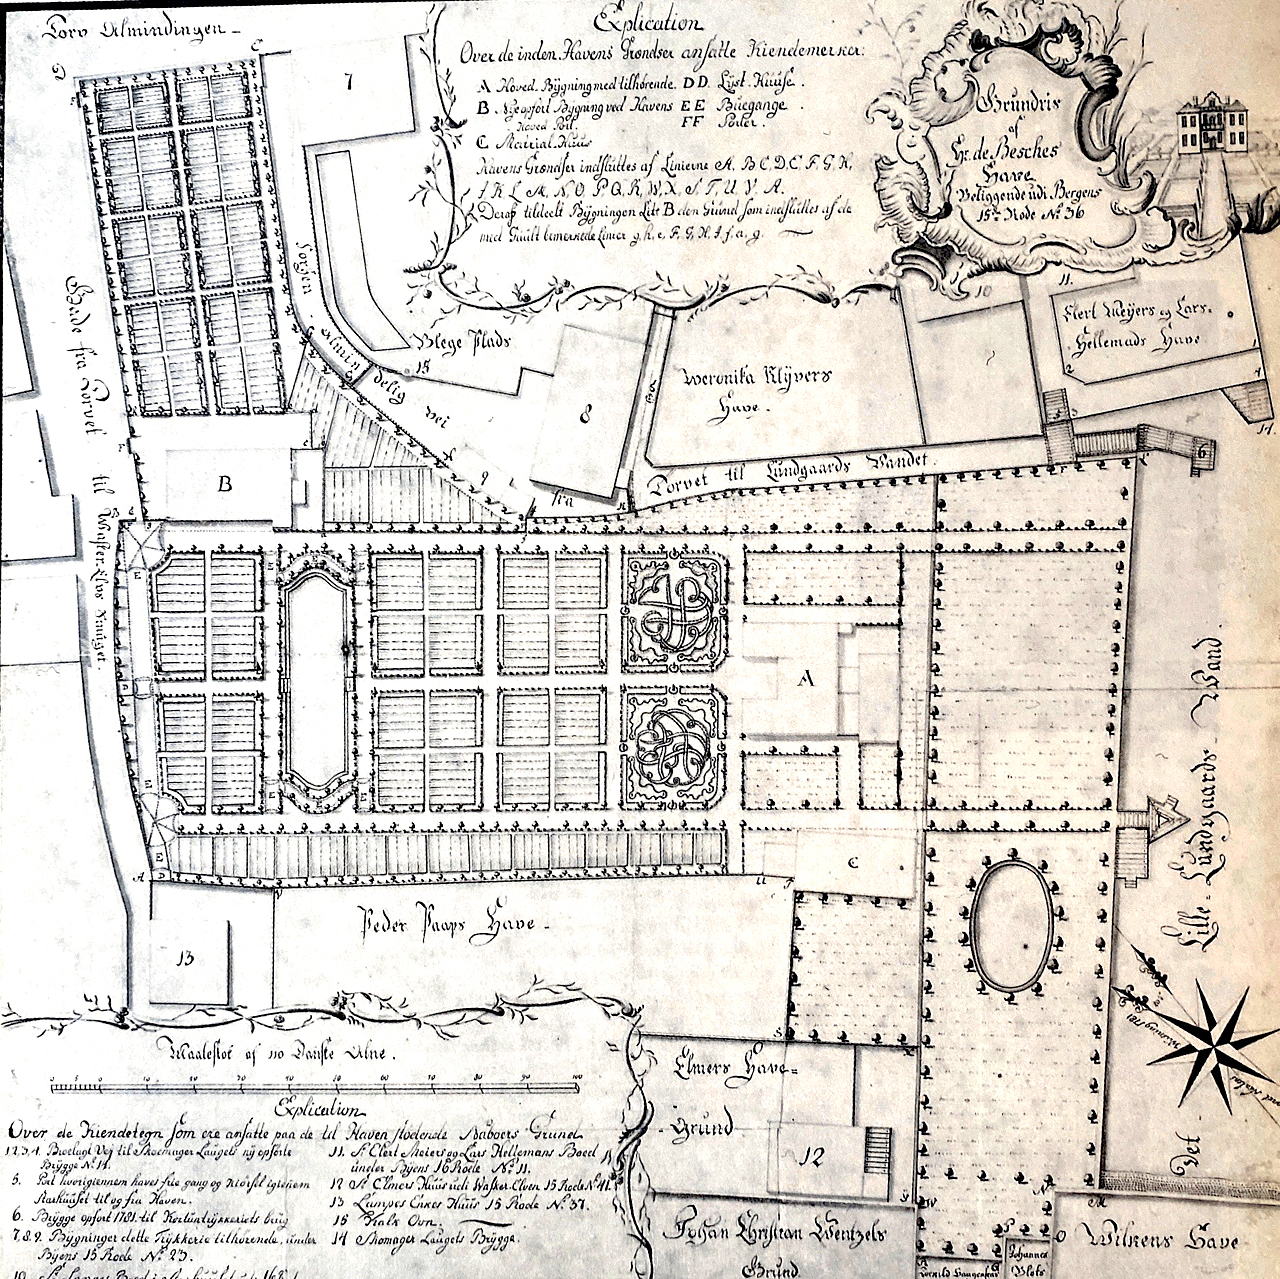 Torv Almindingen
Explication
Over de inden Havens Grondser ansatte Kiendemerker:
A Hoved Bÿgning med tilhörende. DD Lÿst Huuse.
B Nÿe opfört Bÿgning ved Havens EE Buegange.
Hoved Port. FF Porter.
C Matrial Huus
Havens Grondser indsluttes af Linierne A, B C, D, E, F, G, H,
I K L M, N O P Q, R, W, X, S, T, U, V, A.
Deraf tildeelt Bÿgningen Litr B den Grund som indsluttes af de
med Guult bemerkede Linier g, h, e, F, G, H, I, f, a, g.
Grundris
af
Hr. de Besches
Have
Beliggende udi Bergens
15de Rode No 36
7
Blege Plads
15
8
Almindelig vei
9
fra
Torvet til Lundgaards Vandet.
Weronika Klÿvers
Have.
10
11.
Clert Meÿers og Lars
Hellemads Have
2
1
14.
6
Gade fra Torvet til
B
A
C
E
Lille Lundgaards Wand
Det
Peder Paaps Have
13
Maalestok af 110 Danske Alne.
Elmers Have
Grund
12
Johan Christian Wentzels
Grund
Johannes
Blots
Wilkens Have
Explication
Over de Kiendetegn som ere ansatte paa de til Haven stödende Naboers Grund
1.2.3.4. Broelagt Vej til Skomager Laugets nÿ opförte
Brÿgge No 14.
5. Port hvorigiennem haves frie gang og Kiörsel igienem
til og fra Haven.
6. Brÿgge opfört 1781. til Kortuntrÿkkeriets brug
7.8.9. Bÿgninger dette Trÿkkerie tilhörende, under
Bÿens 15 Rode No 23.
11. Sr Clert Meiers og Lars Hellemans Boed
under Bÿens 16 Rode No 11.
12 Sr Elmers Huus 15 Rode No 41.
13 Lampes Enkes Huus 15 Rode No 37.
15 Kalk Ovn.
14 Skomager Laugets Brÿgge.